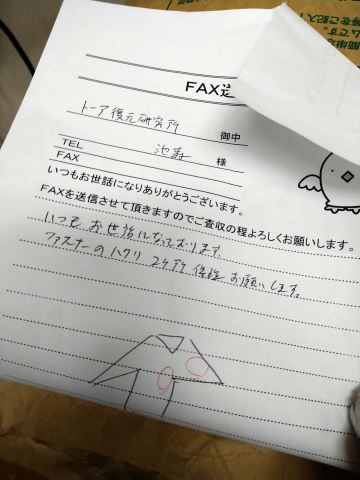 FAX送
トーア復元研究所
御中
TEL
池森 様
FAX
いつもお世話になりありがとうございます。
FAXを送信させて頂きますのでご査収の程よろしくお願いします。
いつも お世話になっております
ファスナーのハクリ 2ヶ所 修理 お願いします。